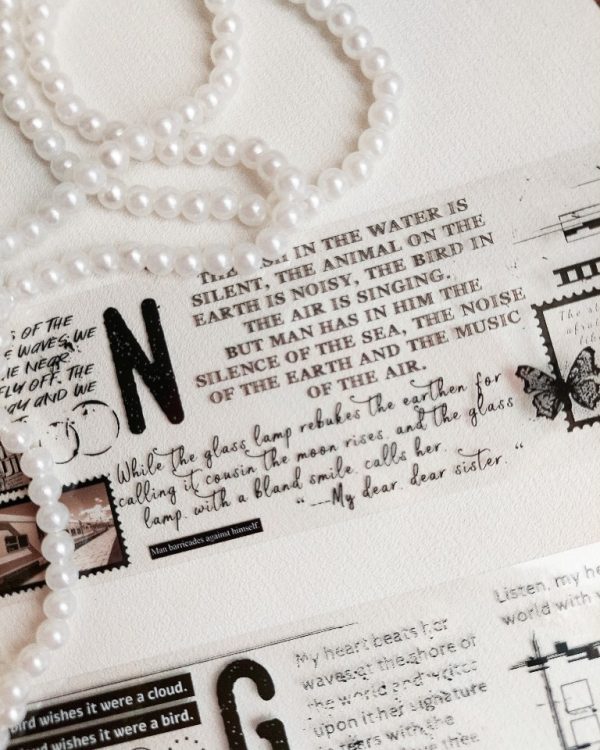 IN THE WATER IS
SILENT, THE ANIMAL ON THE
EARTH IS NOISY, THE BIRD IN
THE AIR IS SINGING.
BUT MAN HAS IN HIM THE
SILENCE OF THE SEA, THE NOISE
OF THE EARTH AND THE MUSIC
OF THE AIR.
OF THE
WAVES, WE
NEAR.
FLY OFF. THE
AND WE
N
While the glass lamp rebukes the earthen for
calling it cousin the moon rises, and the glass
lamp, with a bland smile, calls her,
"---My dear, dear sister. "
Man barricades against himself.
Listen, my he
world with
My heart beats her
waves at the shore of
the world and writes
upon it her signature
in tears with the
thee
G
bird wishes it were a cloud.
wishes it were a bird.